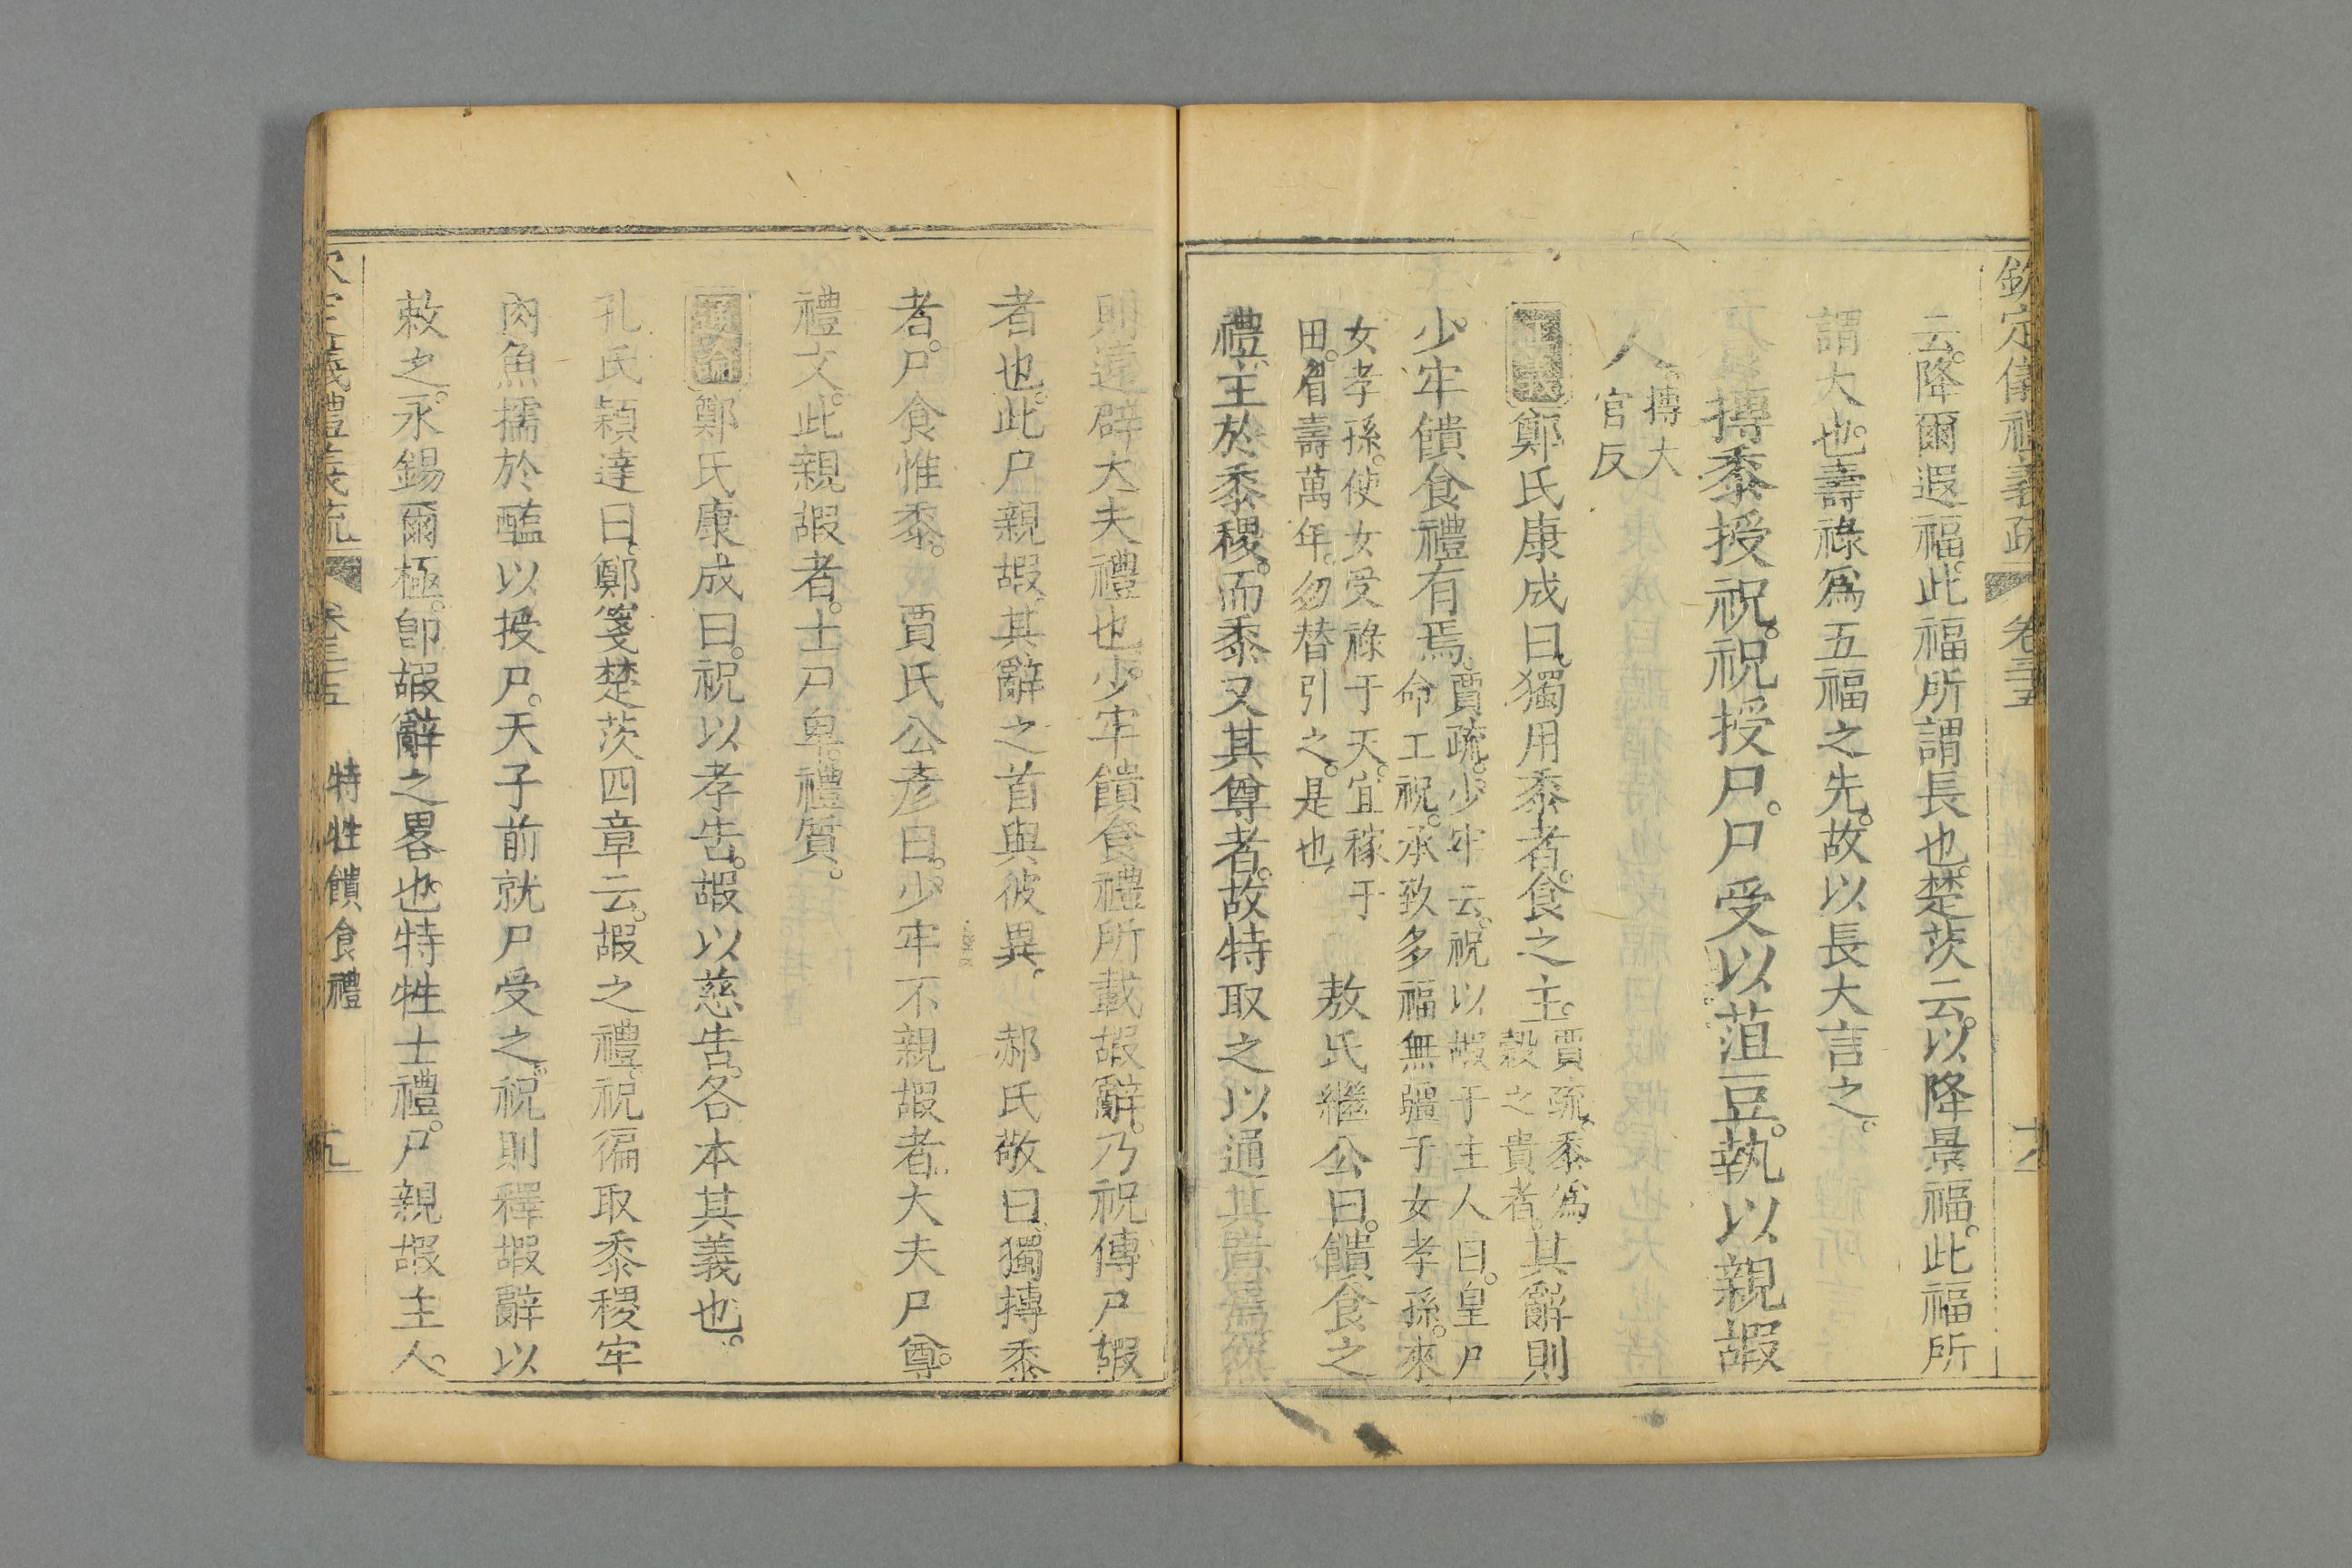 欽定儀禮義疏 卷三五
云。降爾遐福。此福所謂長也。楚茨云。以降景福。此福所
謂大也。壽祿為五福之先。故以長大言之。
摶黍授祝。祝授尸。尸受以菹豆。執以親嘏
人。摶大
官反
正義鄭氏康成曰。獨用黍者。食之主。賈疏。黍為
穀之貴者。其辭則
少牢饋食禮有焉。賈疏。少牢云。祝以嘏于主人曰。皇尸
命工祝。承致多福無疆于女孝孫。來
女孝孫。使女受祿于天。宜稼于
田。眉壽萬年。勿替引之。是也 敖氏繼公曰。饋食之
禮。主於黍稷。而黍又其尊者。故特取之以通其意焉
則違辟大夫禮也。少牢饋食禮所載嘏辭。乃祝傳尸嘏
者也。此尸親嘏。其辭之首與彼異。 郝氏敬曰。獨摶黍
者。尸食惟黍。 賈氏公彥曰。少牢不親嘏者。大夫尸尊。
禮文。此親嘏者。士尸卑。禮質。
通論鄭氏康成曰。祝以孝告。嘏以慈告。各本其義也。
孔氏穎達曰。鄭箋楚茨四章云。嘏之禮。祝徧取黍稷牢
肉魚擩於醢以授尸。天子前就尸受之。祝則釋嘏辭以
敕之。永錫爾極。卽嘏辭之畧也。特牲士禮。尸親嘏主人。
欽定儀禮義疏 卷三五 特牲饋食禮